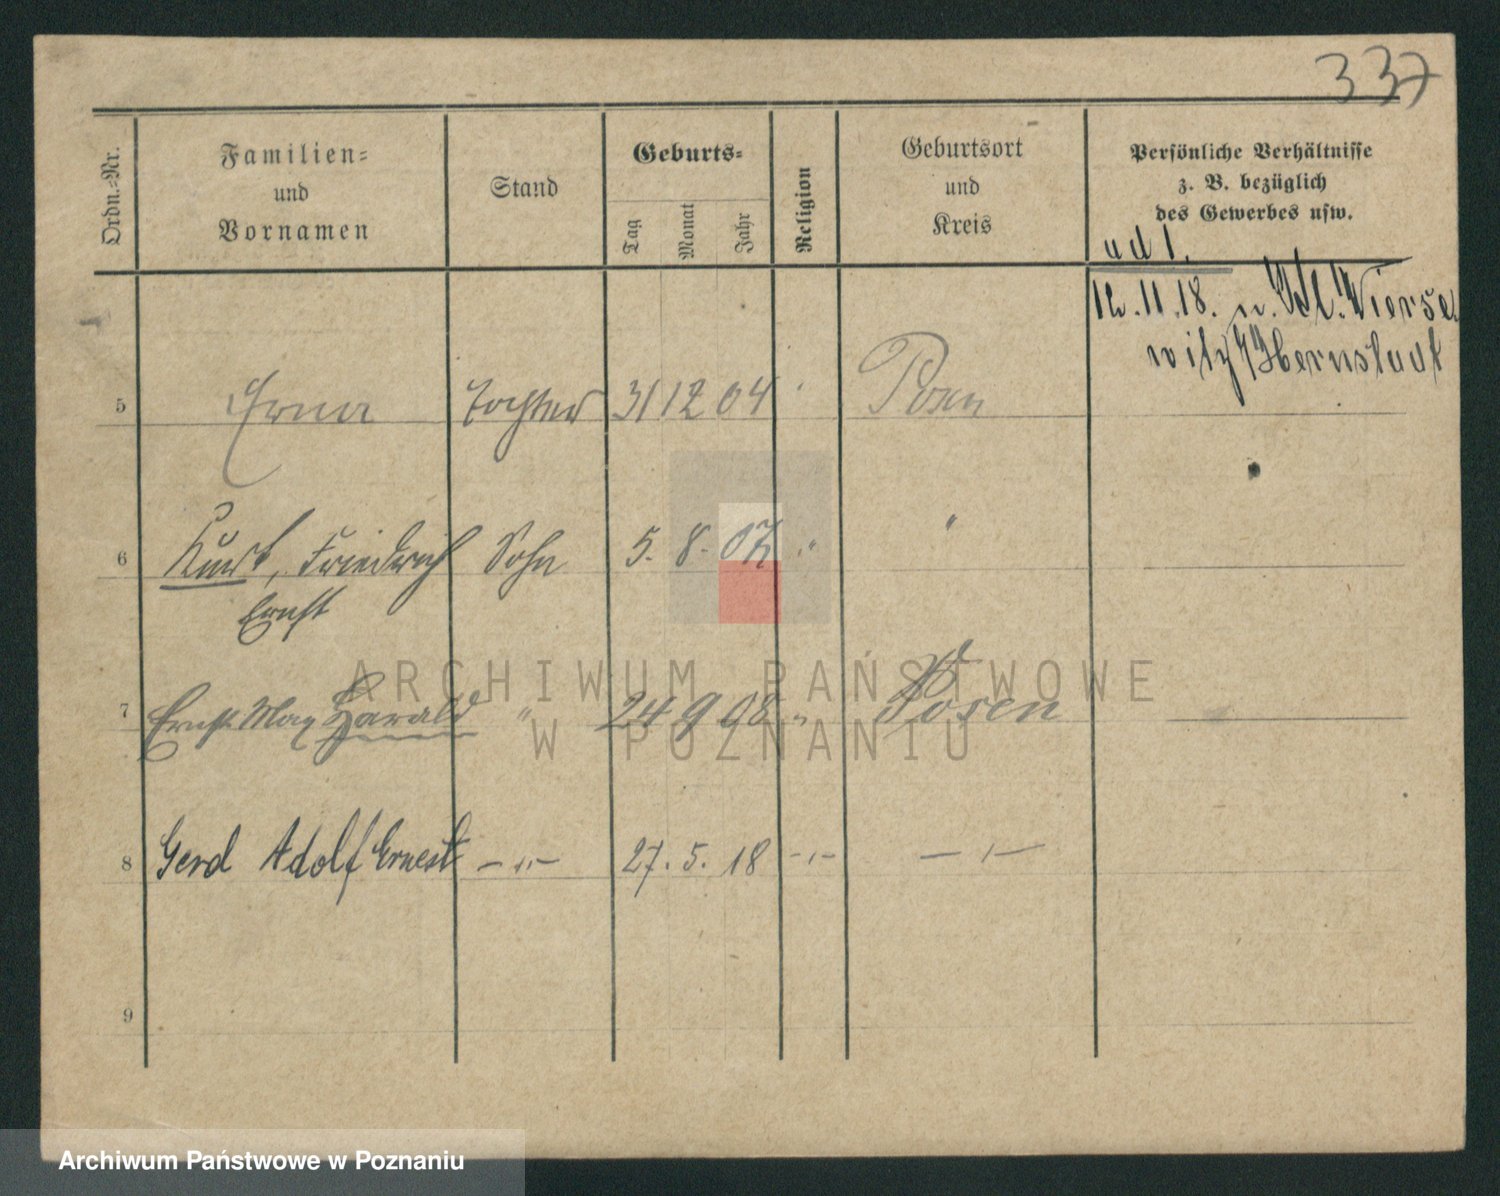 337
Ordn.-Nr.
Familien-
und
Vornamen
Stand
Geburts-
Tag
Monat
Jahr
Religion
Geburtsort
und
Kreis
Persönliche Verhältnisse
z. B. bezüglich
des Gewerbes usw.
ad 1.
12.11.18. n. Kl. Wierse
witz / Hernstadt
5 Erna Tochter 31 12 04 " Posen
6 Kurt, Friedrich Sohn 5. 8. 07 " "
Ernst
7 Ernst Max Harald " 24 9 08 " Posen
8 Gerd Adolf Ernest -"- 27. 5. 18 -"- -"-
9
ARCHIWUM PAŃSTWOWE
W POZNANIU
Archiwum Państwowe w Poznaniu